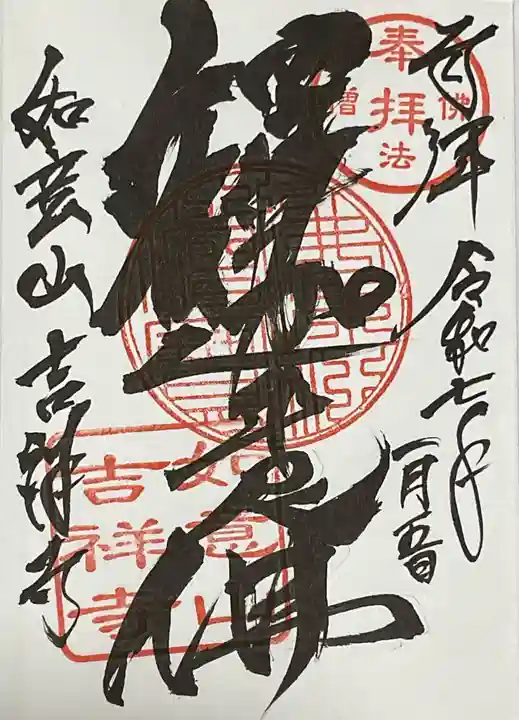 奉拝
令和七年
一月五日
奉拝
佛
法
僧
釋迦牟尼佛
如意山 吉祥寺
如意山
吉祥寺